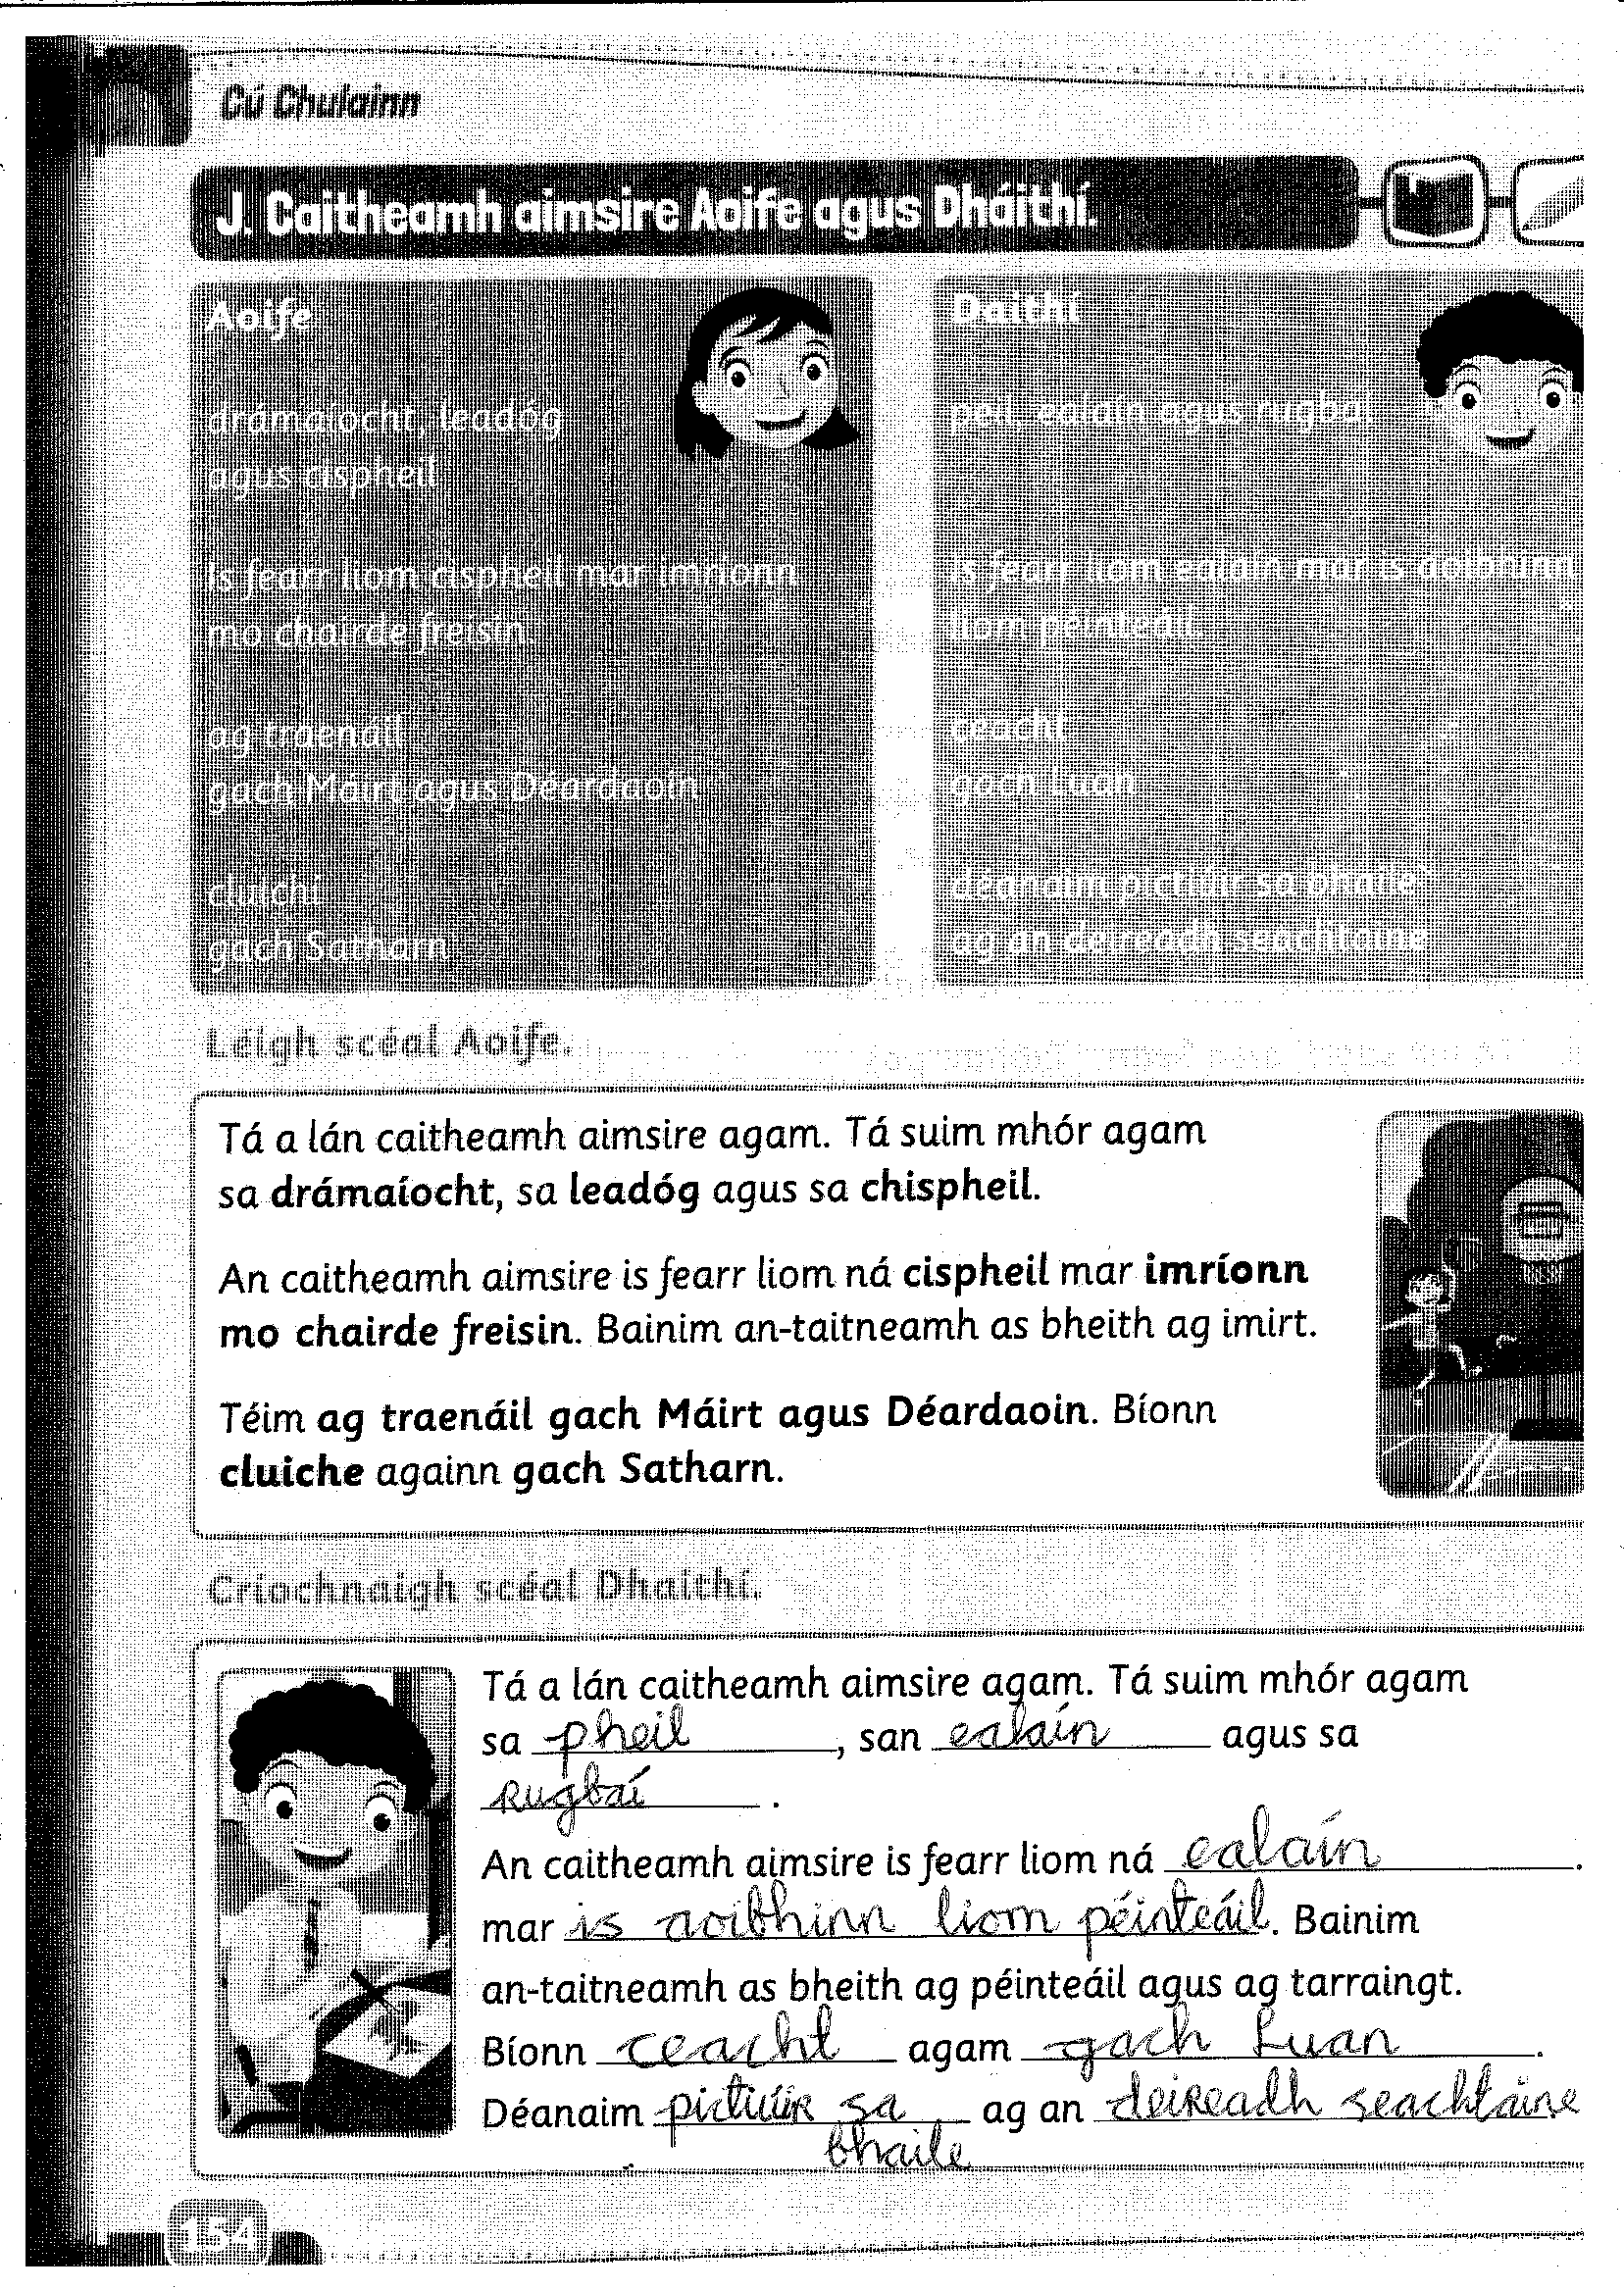 Cú Chulainn
J. Caitheamh aimsire Aoife agus Dháithí.
Aoife
drámaíocht, leadóg
agus cispheil
is fearr liom cispheil mar imríonn
mo chairde freisin.
ag traenáil
gach Máirt agus Déardaoin
cluichí
gach Satharn
Daithí
peil, ealaín agus rugbaí
is fearr liom ealaín mar is aoibhinn
liom péinteáil.
ceacht
gach Luan
déanaim pictiúir sa bhaile
ag an deireadh seachtaine
Léigh scéal Aoife.
Tá a lán caitheamh aimsire agam. Tá suim mhór agam
sa drámaíocht, sa leadóg agus sa chispheil.
An caitheamh aimsire is fearr liom ná cispheil mar imríonn
mo chairde freisin. Bainim an-taitneamh as bheith ag imirt.
Téim ag traenáil gach Máirt agus Déardaoin. Bíonn
cluiche againn gach Satharn.
Críochnaigh scéal Dhaithí.
Tá a lán caitheamh aimsire agam. Tá suim mhór agam
sa pheil, san ealaín agus sa
Rugbaí.
An caitheamh aimsire is fearr liom ná ealaín.
mar is aoibhinn liom péinteáil. Bainim
an-taitneamh as bheith ag péinteáil agus ag tarraingt.
Bíonn ceacht agam gach Luan.
Déanaim pictiúir sa ag an deireadh seachtaine
bhaile
154